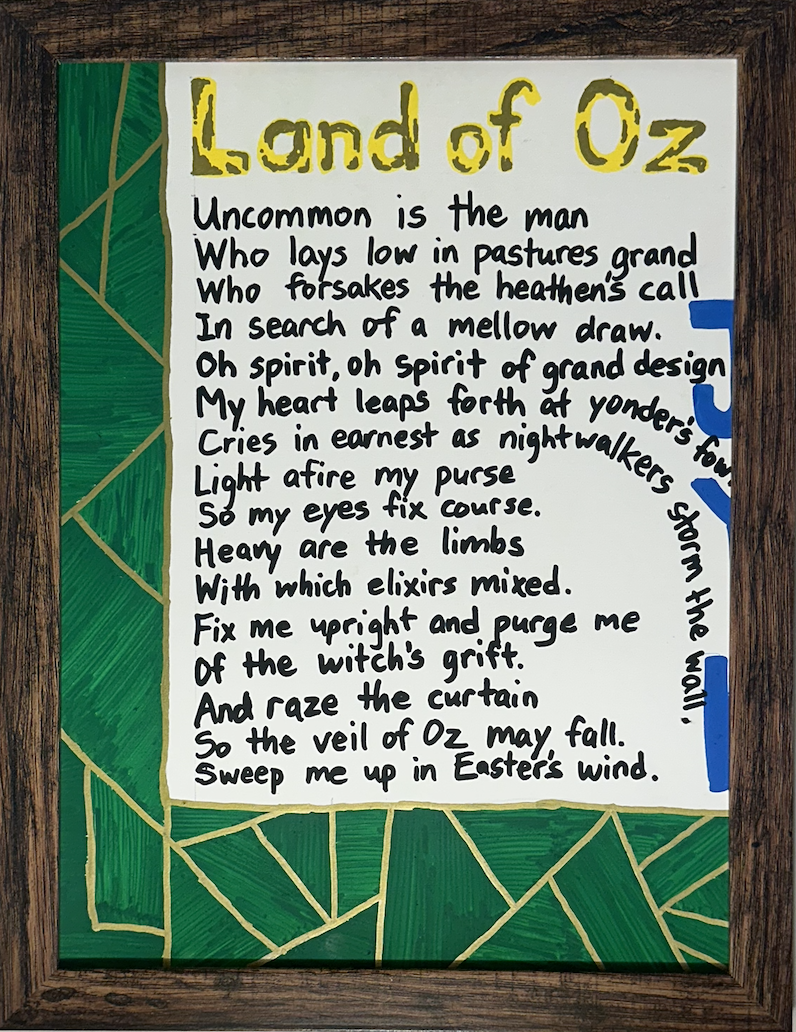 Land of Oz
Uncommon is the man
Who lays low in pastures grand
Who forsakes the heathen's call
In search of a mellow draw.
Oh spirit, oh spirit of grand design
My heart leaps forth at yonder's
Cries in earnest as nightwalkers storm the wall,
Light afire my purse
So my eyes fix course.
Heavy are the limbs
With which elixirs mixed.
Fix me upright and purge me
Of the witch's grift.
And raze the curtain
So the veil of Oz may, fall.
Sweep me up in Easter's wind.